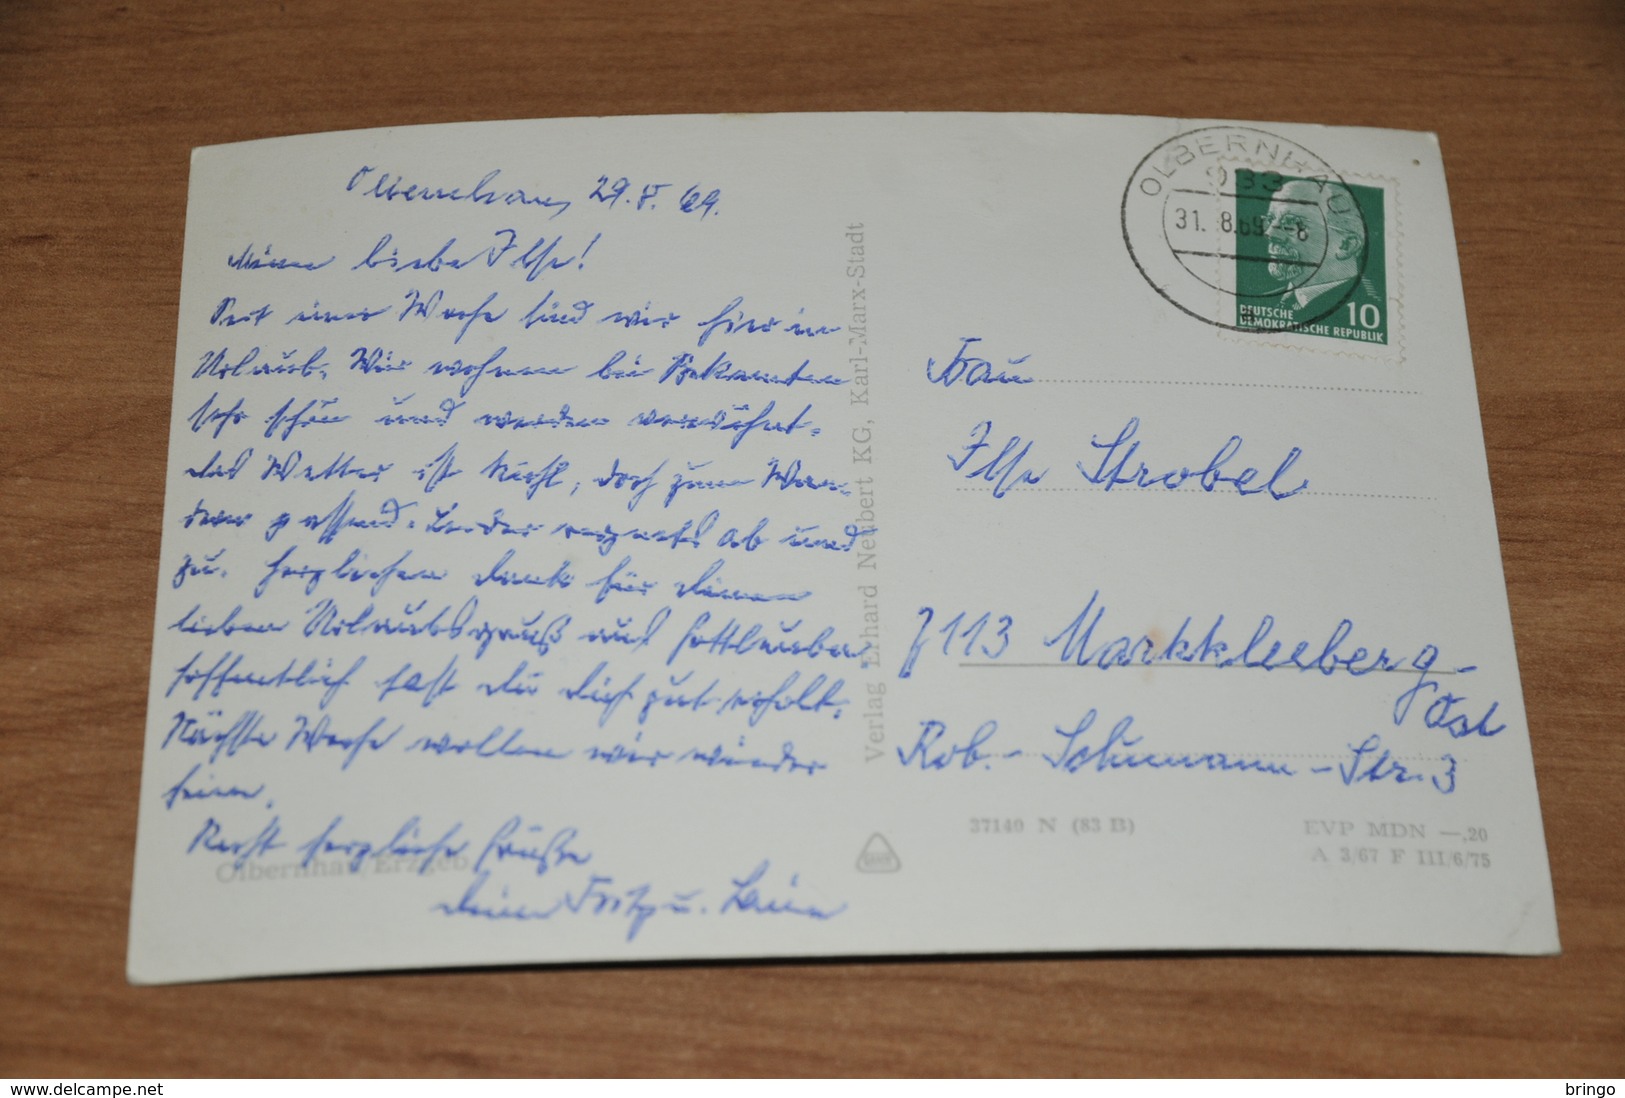 Olbernhau, 29.8.69.
Meine liebe Ilse!
Seit einer Woche sind wir hier in
Urlaub. Wir wohnen bei Bekannten
sehr schön und werden verwöhnt.
Das Wetter ist kühl, doch zum Wan-
dern passend. Leider regnets ab und
zu. Herzlichen Dank für Deinen
lieben Urlaubsgruß aus
hoffentlich hast Du Dich gut erholt.
Nächste Woche wollen wir wieder
heim.
Recht herzliche Grüße
Deine Fritz u.
Olbernhau/Erzgeb.
Verlag Erhard Neubert KG, Karl-Marx-Stadt
OLBERNHAU
933
31.8.69.--8
10
DEUTSCHE
DEMOKRATISCHE REPUBLIK
Frau
Ilse Strobel
7113 Markkleeberg-
Ost
Rob.-Schumann-Str. 3
37140 N (83 B)
EVP MDN —,20
A 3/67 F III/6/75
www.delcampe.net
bringo